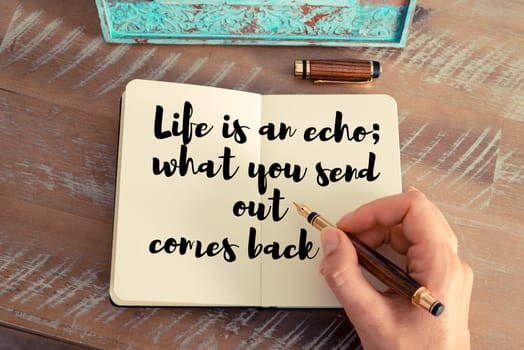 Life is an echo;
what you send
out
comes back